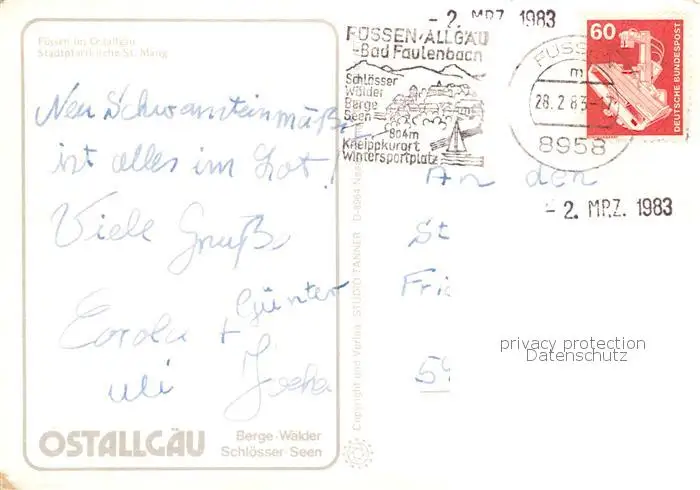 Füssen im Ostallgäu
Stadtpfarrkirche St. Mang
Neu Schwansteinmäßig
ist alles im Lot!
Viele Grüße
Carola + Günter
Uli
OSTALLGÄU
Berge-Wälder
Schlösser-Seen
Copyright und Verlag STUDIO TANNER D-8964
- 2. MRZ. 1983
FÜSSEN-ALLGÄU
-Bad Faulenbach
Schlösser
Wälder
Berge
Seen
804m
Kneippkurort
Wintersportplatz
FÜSSEN
m
28.2.83
8958
60
DEUTSCHE BUNDESPOST
An den
- 2. MRZ. 1983
St
Frie
54
privacy protection
Datenschutz